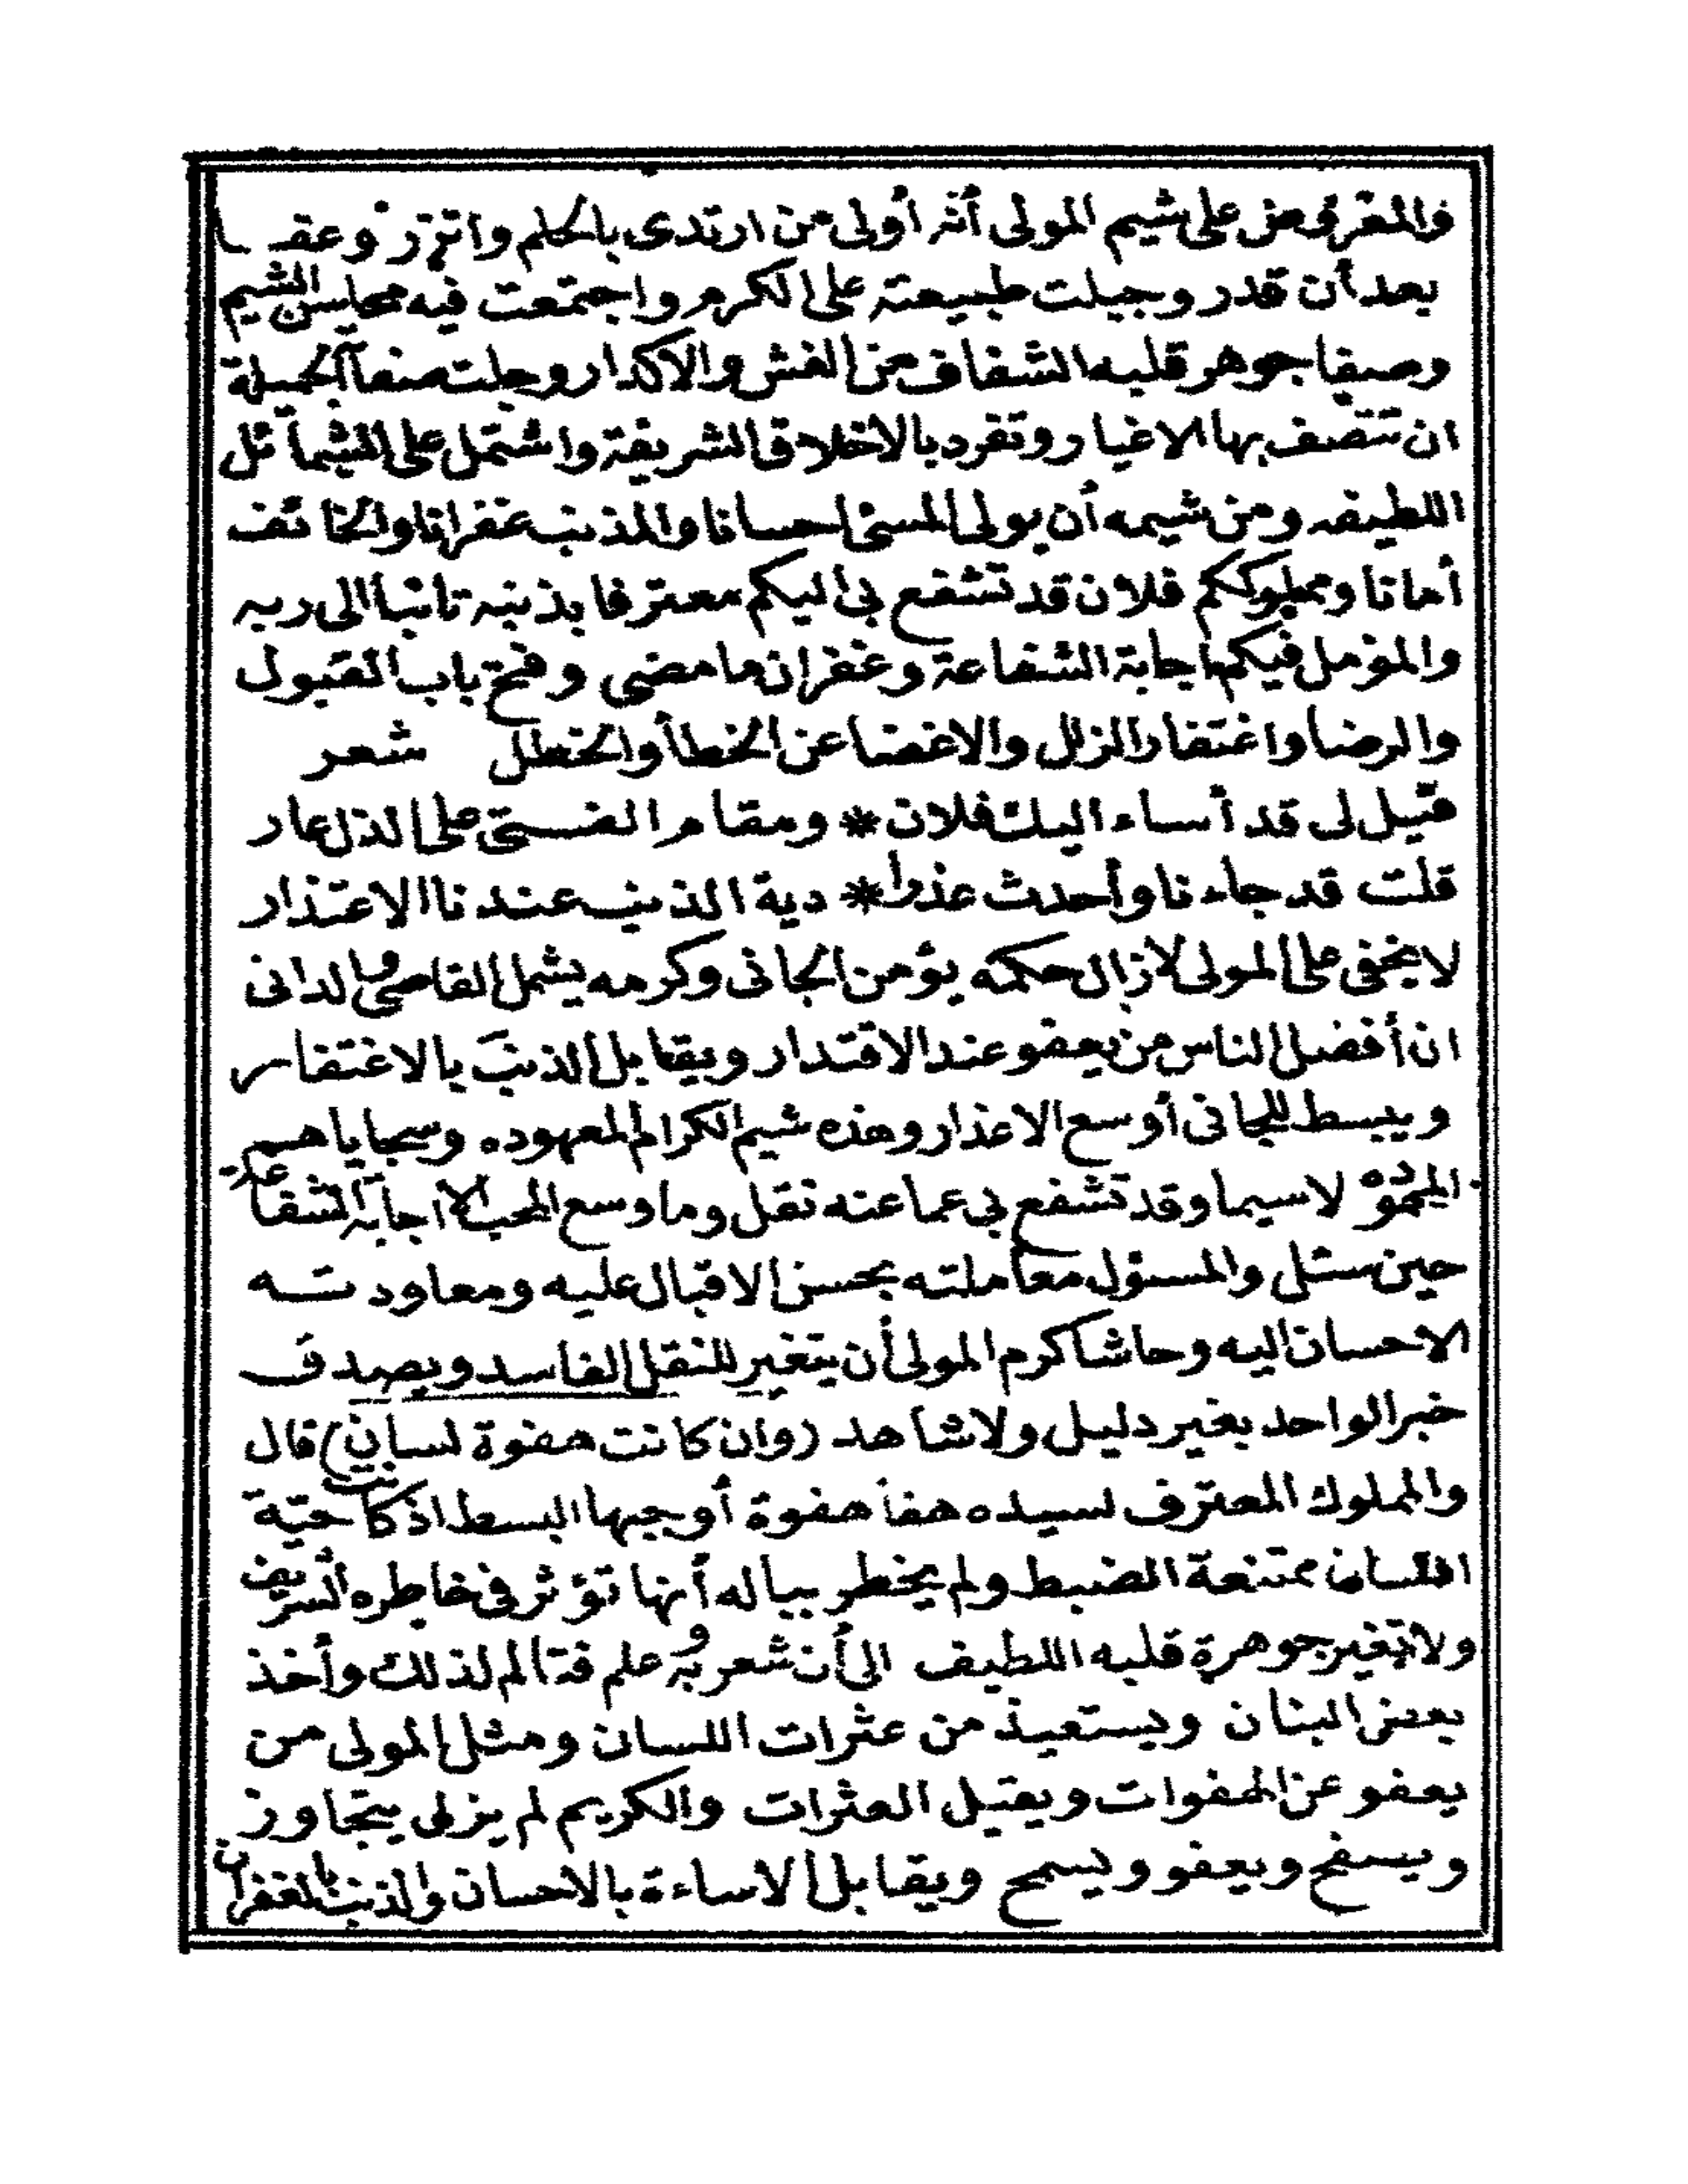 والمفروض على شيم المولى أنه أولى من ارتدى بالحلم واتزر وعفـ ـا
بعد أن قدر وجبلت طبيعته على الكرم واجتمعت فيه محاسن الشيم
وصفا جوهر قلبه الشفاف من الغش والاكدار وجلت صفاته الجميلة
ان تتصف بها الاغيار وتفرد بالاخلاق الشريفة واشتمل على الشمائل
اللطيفه ومن شيمه أن يولى المسئ احسانا والمذنب غفرانا والخائف
أمانا ومملوككم فلان قد تشفع بى اليكم معترفا بذنبه تائبا الى ربه
والمؤمل فيكم اجابة الشفاعة وغفران ما مضى وفتح باب القبول
والرضا واغتفار الزلل والاغضا عن الخطأ والخطل شعر
قيل لى قد أساء اليك فلان * ومقام الفتى على الذل عار
قلت قد جاءنا وأحدث عذرا * دية الذنب عندنا الاعتذار
لا يخفى على المولى لازال حكمه يؤمن الجانى وكرمه يشمل القاصى والدانى
ان أفضل الناس من يعفو عند الاقتدار ويقابل الذنب بالاغتفار
ويبسط للجانى أوسع الاعذار وهذه شيم الكرام المعهوده وسجاياهم
المحموده لا سيما وقد تشفع بى عما عنه نقل وما وسع المحب الا اجابة الشفاعة
حين سئل والمسئول معاملته بحسن الاقبال عليه ومعاودتـه
الاحسان اليه وحاشا كرم المولى أن يتغير للنقل الفاسد ويصدق
خبر الواحد بغير دليل ولا شاهد (وان كانت هفوة لسان) قال
والمملوك المعترف لسيده هفا هفوة أوجبها البسط اذ كانت حقية
اللسان ممتنعة الضبط ولم يخطر بباله أنها تؤثر فى خاطره الشريف
ولا تغير جوهرة قلبه اللطيف الى أن شعر به وعلم فتالم لذلك وأخذ
يعض البنان ويستعيذ من عثرات اللسان ومثل المولى من
يعفو عن الهفوات ويقيل العثرات والكريم لم يزل يتجاوز
ويصفح ويعفو ويسمح ويقابل الاساءة بالاحسان والذنب بالغفران